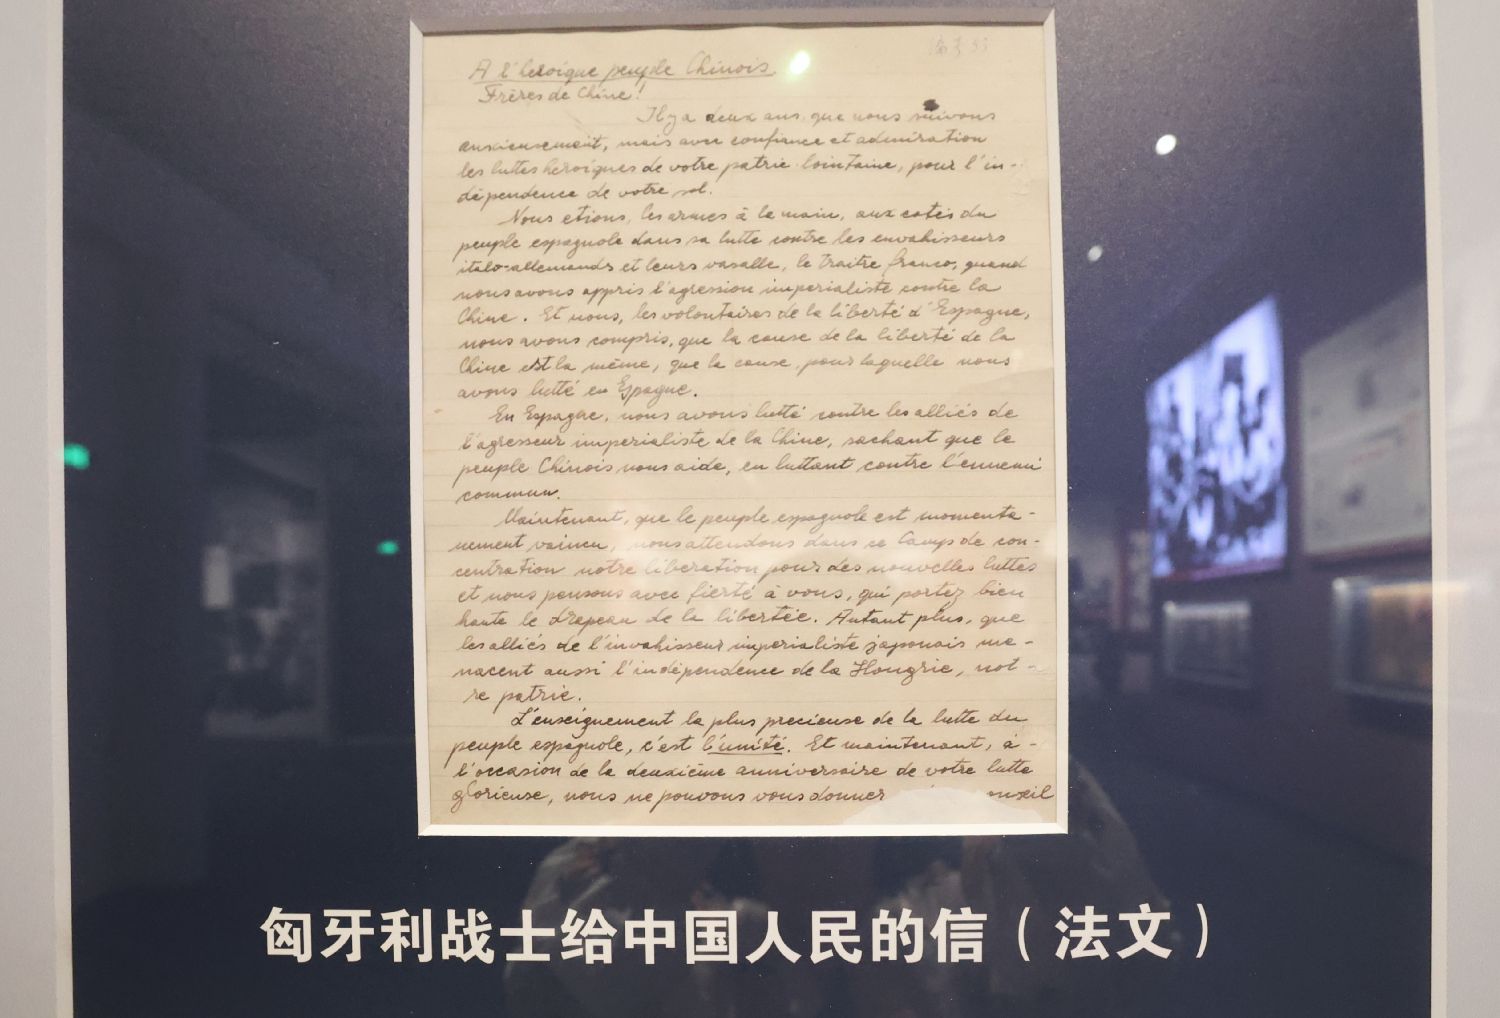 A l'heroïque peuple Chinois
Frères de Chine!
Il y a deux ans que nous suivons
anxieusement, mais avec confiance et admiration
les luttes heroïques de votre patrie lointaine, pour l'in-
dépendence de votre sol.
Nous etions, les armes à la main, aux cotés du
peuple espagnole dans sa lutte contre les envahisseurs
italo-allemands et leurs vasalle, le traitre Franco, quand
nous avons appris l'agression imperialiste contre la
Chine. Et nous, les volontaires de la liberté d'Espagne,
nous avons compris, que la cause de la liberté de la
Chine est la même, que la cause, pour laquelle nous
avons lutté en Espagne.
En Espagne, nous avons lutté contre les alliés de
l'agresseur imperialiste de la Chine, sachant que le
peuple Chinois nous aide, en luttant contre l'ennemi
commun.
Maintenant, que le peuple espagnole est momenta-
nement vaincu, nous attendons dans ce Camp de con-
centration notre liberation pour des nouvelles luttes
et nous pensons avec fierté à vous, qui portez bien
haute le drapeau de la libertée. Autant plus, que
les alliés de l'invahisseur imperialiste japonais me-
nacent aussi l'indépendence de la Hongrie, not-
re patrie.
L'enseignement la plus precieuse de la lutte du
peuple espagnole, c'est l'unité. Et maintenant, à
l'occasion de la deuxième anniversaire de votre lutte
glorieuse, nous ne pouvons vous donner
匈牙利战士给中国人民的信（法文）